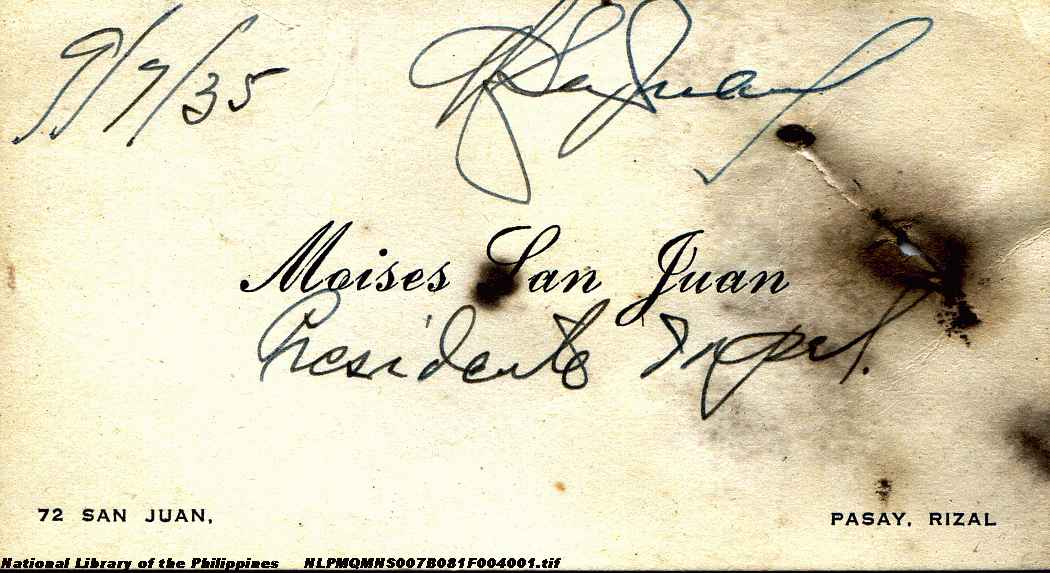 9/7/35
MSanJuan
Moises San Juan
Presidente Impal.
72 SAN JUAN,
PASAY, RIZAL
National Library of the Philippines NLPMQMNS007B081F004001.tif